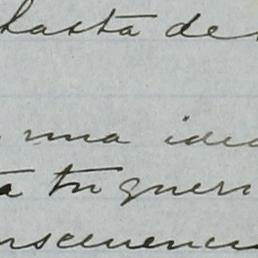 hasta de
una idea
a tu queri
nsecuenci